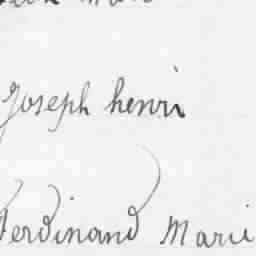 Joseph henri
Ferdinand Marie